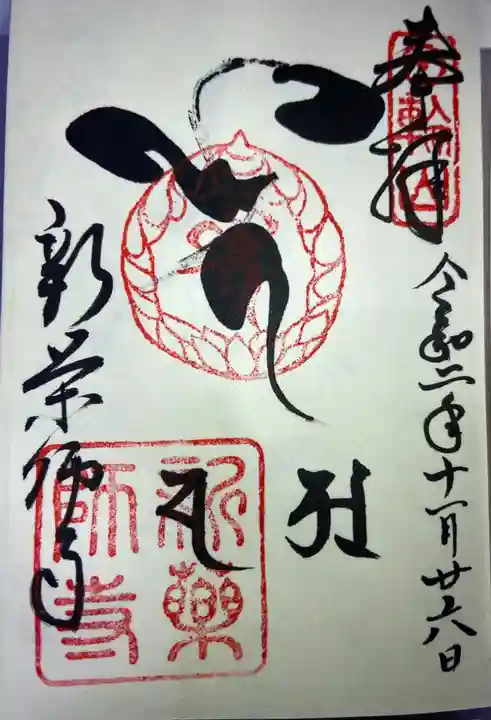 奉拝
令和二年十一月廿六日
新薬師寺
新藥師寺